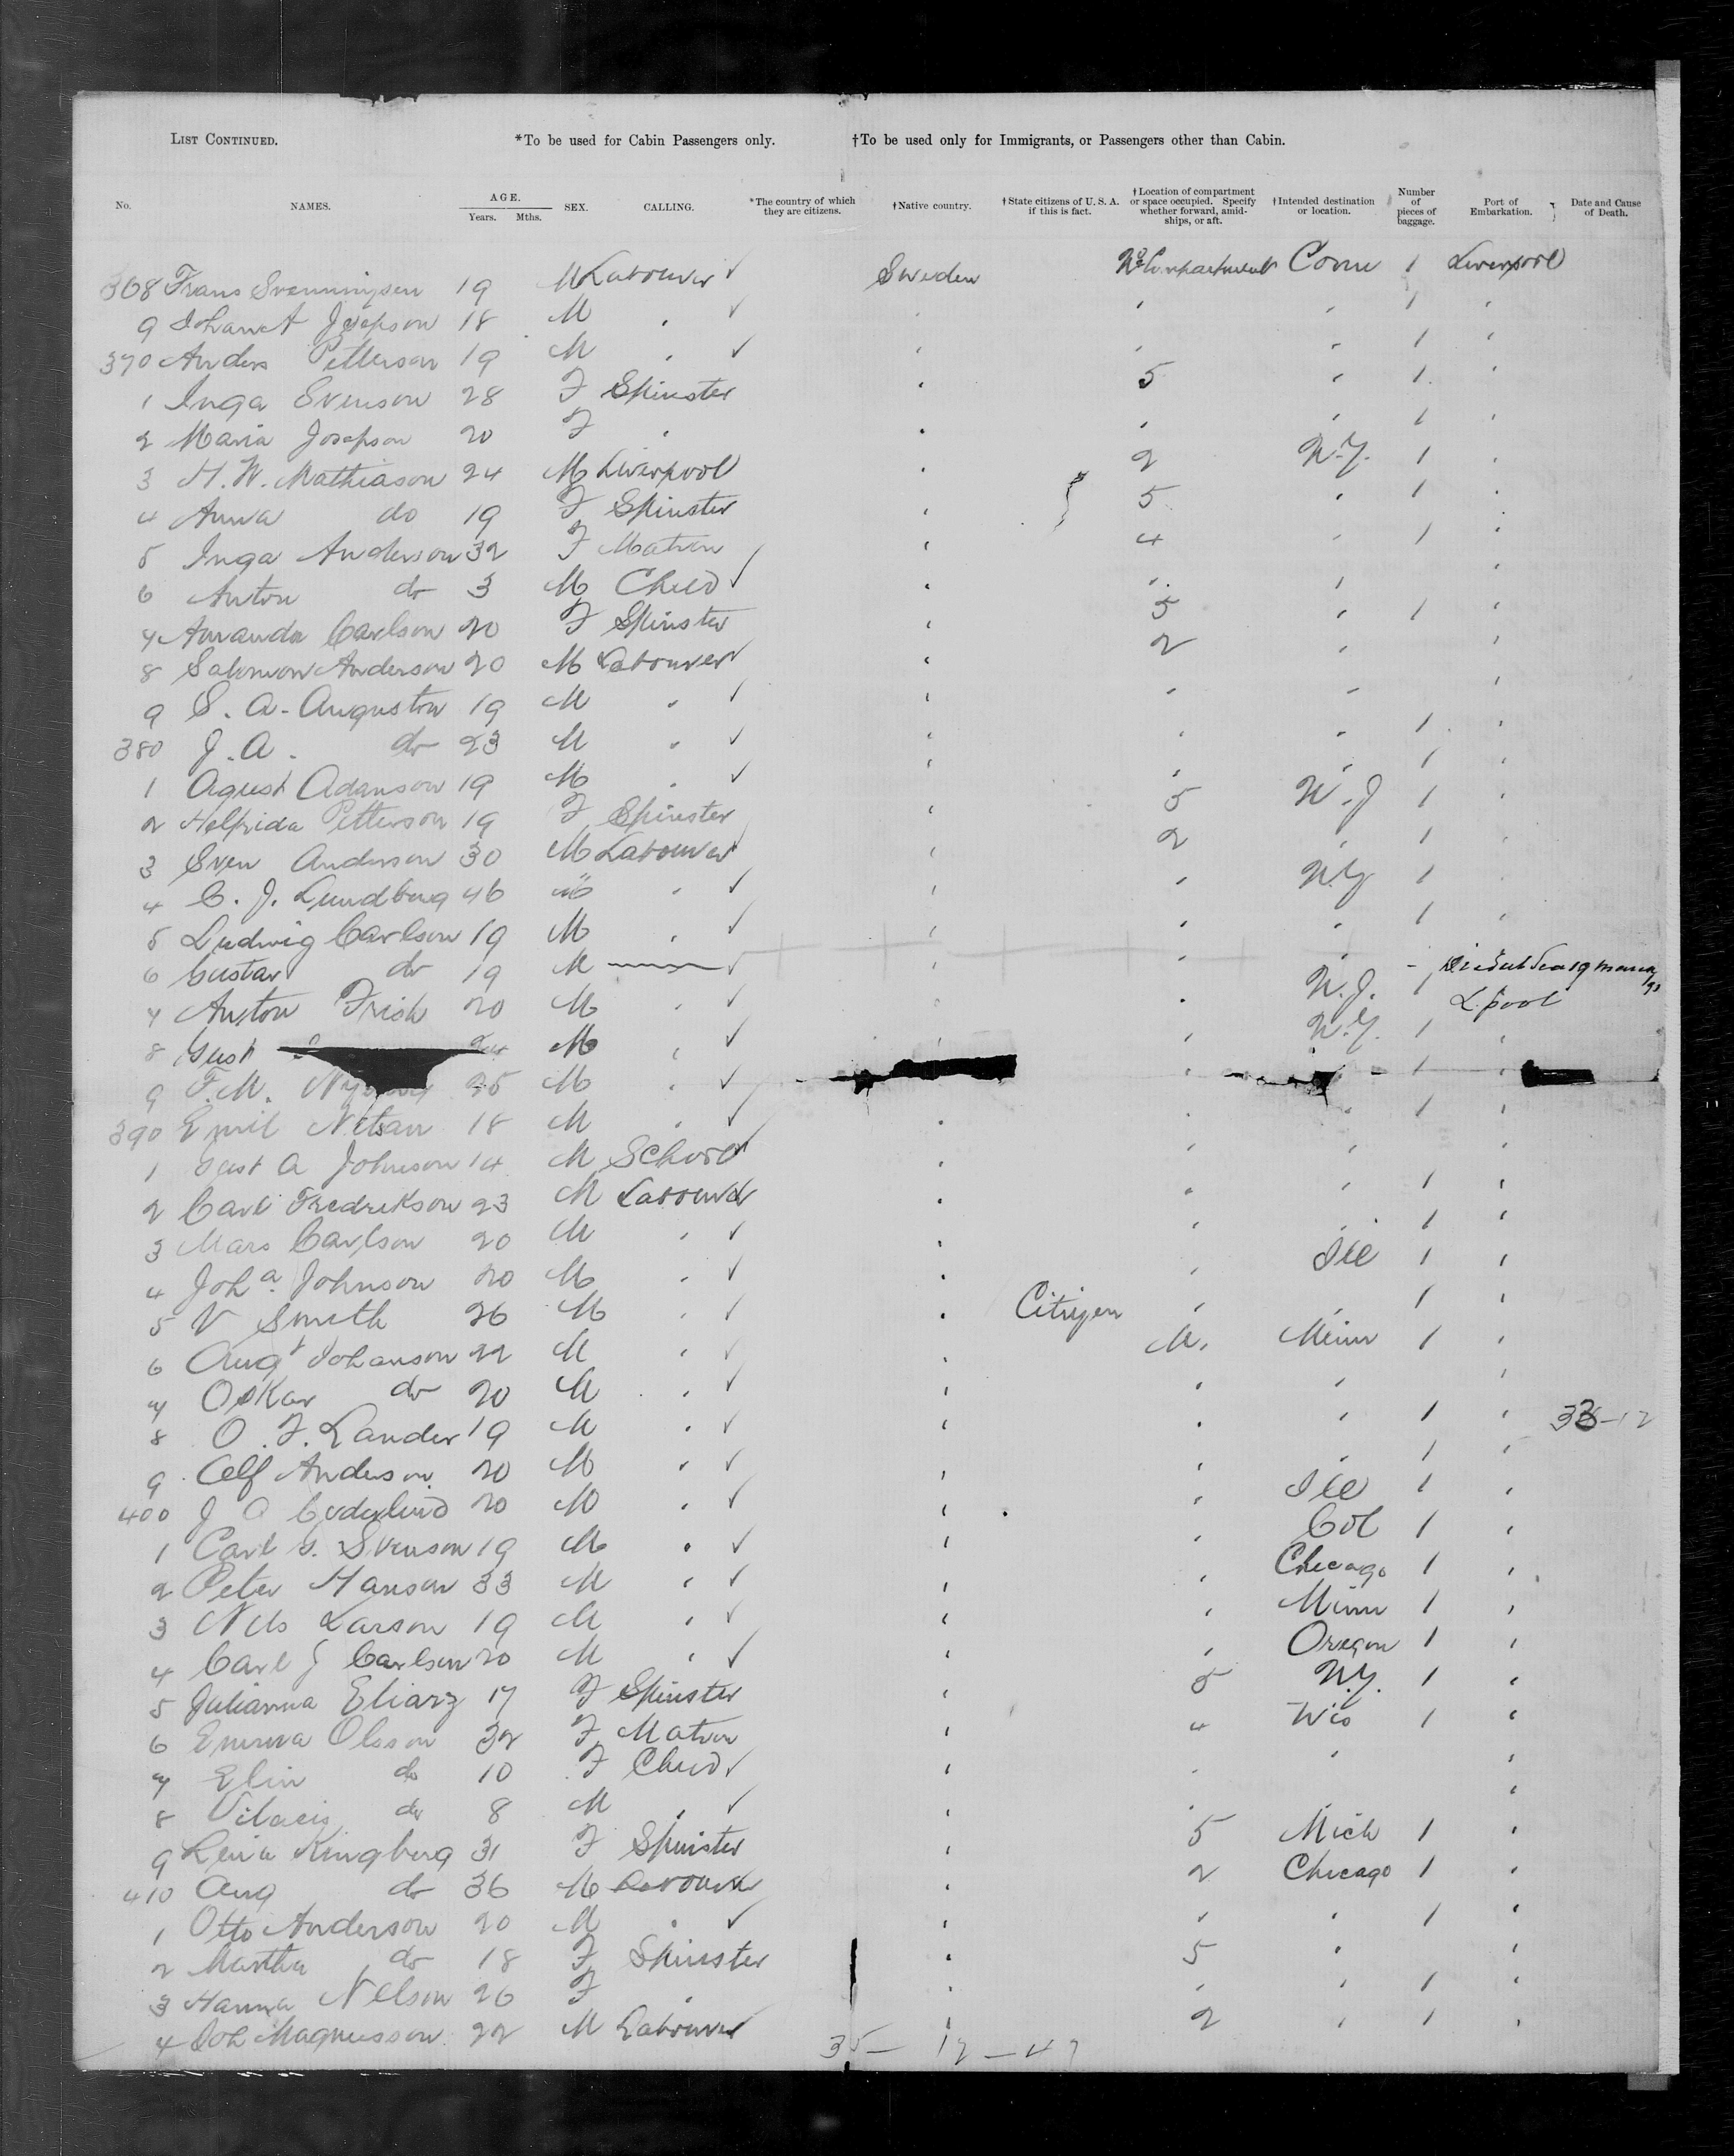 LIST CONTINUED. *To be used for Cabin Passengers only. †To be used only for Immigrants, or Passengers other than Cabin.
No. NAMES. AGE. Years. Mths. SEX. CALLING. *The country of which they are citizens. †Native country. †State citizens of U. S. A. if this is fact. †Location of compartment or space occupied. Specify whether forward, amidships, or aft. †Intended destination or location. Number of pieces of baggage. Port of Embarkation. Date and Cause of Death.
368 Frans Svenningsen 19 M Labourer ✓ Sweden Conn 1 Liverpool
9 Johan A Josepson 18 M " ✓ " " " 1 "
370 Anders Petterson 19 M " ✓ " " " 1 "
1 Inga Svenson 28 F Spinster " 5 " 1 "
2 Maria Josepson 20 F " " " " 1 "
3 H. W. Mathiason 24 M Liverpool " 2 N.Y. 1 "
4 Anna do 19 F Spinster " 5 " 1 "
5 Inga Anderson 32 F Matron " 4 " 1 "
6 Anton do 3 M Child ✓ " " " "
7 Amanda Carlson 20 F Spinster " 5 " 1 "
8 Salomon Anderson 20 M Labourer ✓ " 2 " "
9 S. A. Auguston 19 M " ✓ " " " "
380 J. A. do 23 M " ✓ " " " 1 "
1 Agust Adanson 19 M " ✓ " " " 1 "
2 Helfrida Petterson 19 F Spinster " 5 N.J 1 "
3 Sven Anderson 30 M Labourer ✓ " 2 " 1 "
4 C. J. Lundberg 46 " " ✓ " " N.Y 1 "
5 Ludwig Carlson 19 M " ✓ " " " 1 "
6 Gustav do 19 M ✓ " " " -
7 Anton Frish 20 M " ✓ " " N.J. 1 L.pool
8 Gust 24 M " ✓ " " N.Y. 1 "
9 F. M. 25 M " ✓ " " 1 "
390 Emil Nelson 18 M " ✓ " " " 1 "
1 Gust A Johnson 14 M School ✓ " " " "
2 Carl Fredrikson 23 M Labourer " " " 1 "
3 Mars Carlson 20 M " ✓ " " " 1 "
4 Joh a. Johnson 20 M " ✓ " " Ill 1 "
5 V Smith 26 M " ✓ " Citizen " " 1 "
6 Augt Johanson 22 M " ✓ " M. Minn 1 "
7 Oskar do 20 M " ✓ " " " "
8 O. F. Lander 19 M " ✓ " " " 1 "
9 Alf Anderson 20 M " ✓ " " " 1 "
400 J O Cederlund 20 M " ✓ " " Ill 1 "
1 Carl G. Svenson 19 M " ✓ " " Col 1 "
2 Peter Hanson 33 M " ✓ " " Chicago 1 "
3 Nels Larson 19 M " ✓ " " Minn 1 "
4 Carl J Carlson 20 M " ✓ " " Oregon 1 "
5 Julianna Eliarz 17 F Spinster " 5 N.Y. 1 "
6 Emma Olsson 32 F Matron " 4 Wis 1 "
7 Elin do 10 F Child ✓ " " " "
8 do 8 M " ✓ " " " "
9 Lena Kingberg 31 F Spinster " 5 Mich 1 "
410 Aug do 36 M Labourer " 2 Chicago 1 "
1 Otto Anderson 20 M " ✓ " " " 1 "
2 Martha do 18 F Spinster " 5 " "
3 Hanna Nelson 26 F " " " " 1 "
4 Joh Magnusson 22 M Labourer " 2 " 1 "
35 — 12 — 47